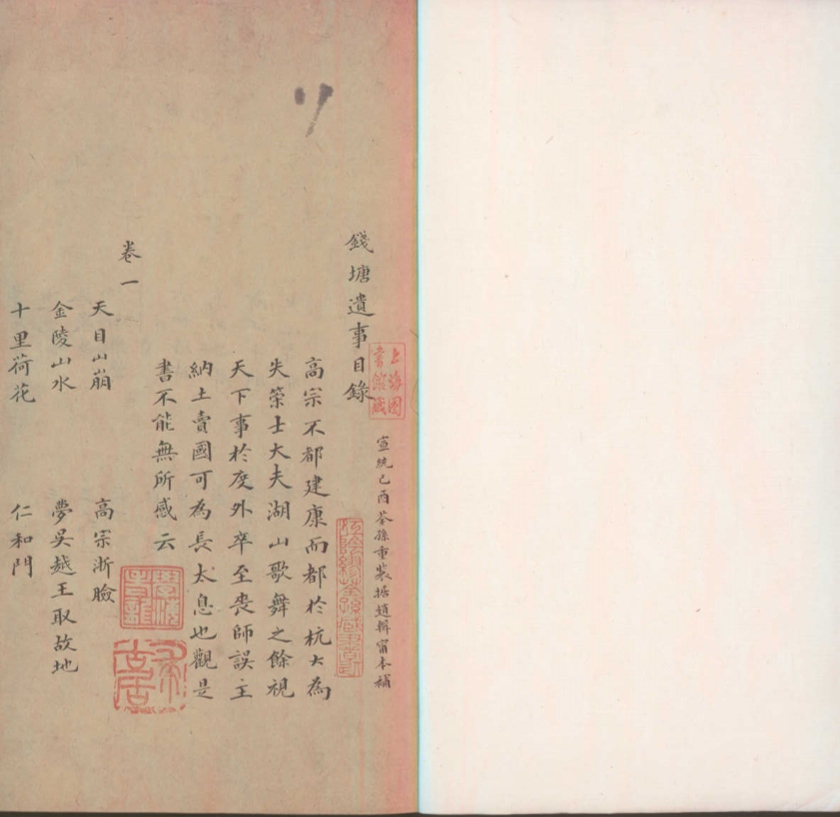 上海圖書館藏
宣統己酉荃孫重裝據趙輯甯本補
錢塘遺事目錄
高宗不都建康而都於杭大為
失策士大夫湖山歌舞之餘視
天下事於度外卒至喪師誤主
納土賣國可為長太息也觀是
書不能無所感云
卷一
天目山崩 高宗浙臉
金陵山水 夢吳越王取故地
十里荷花 仁和門